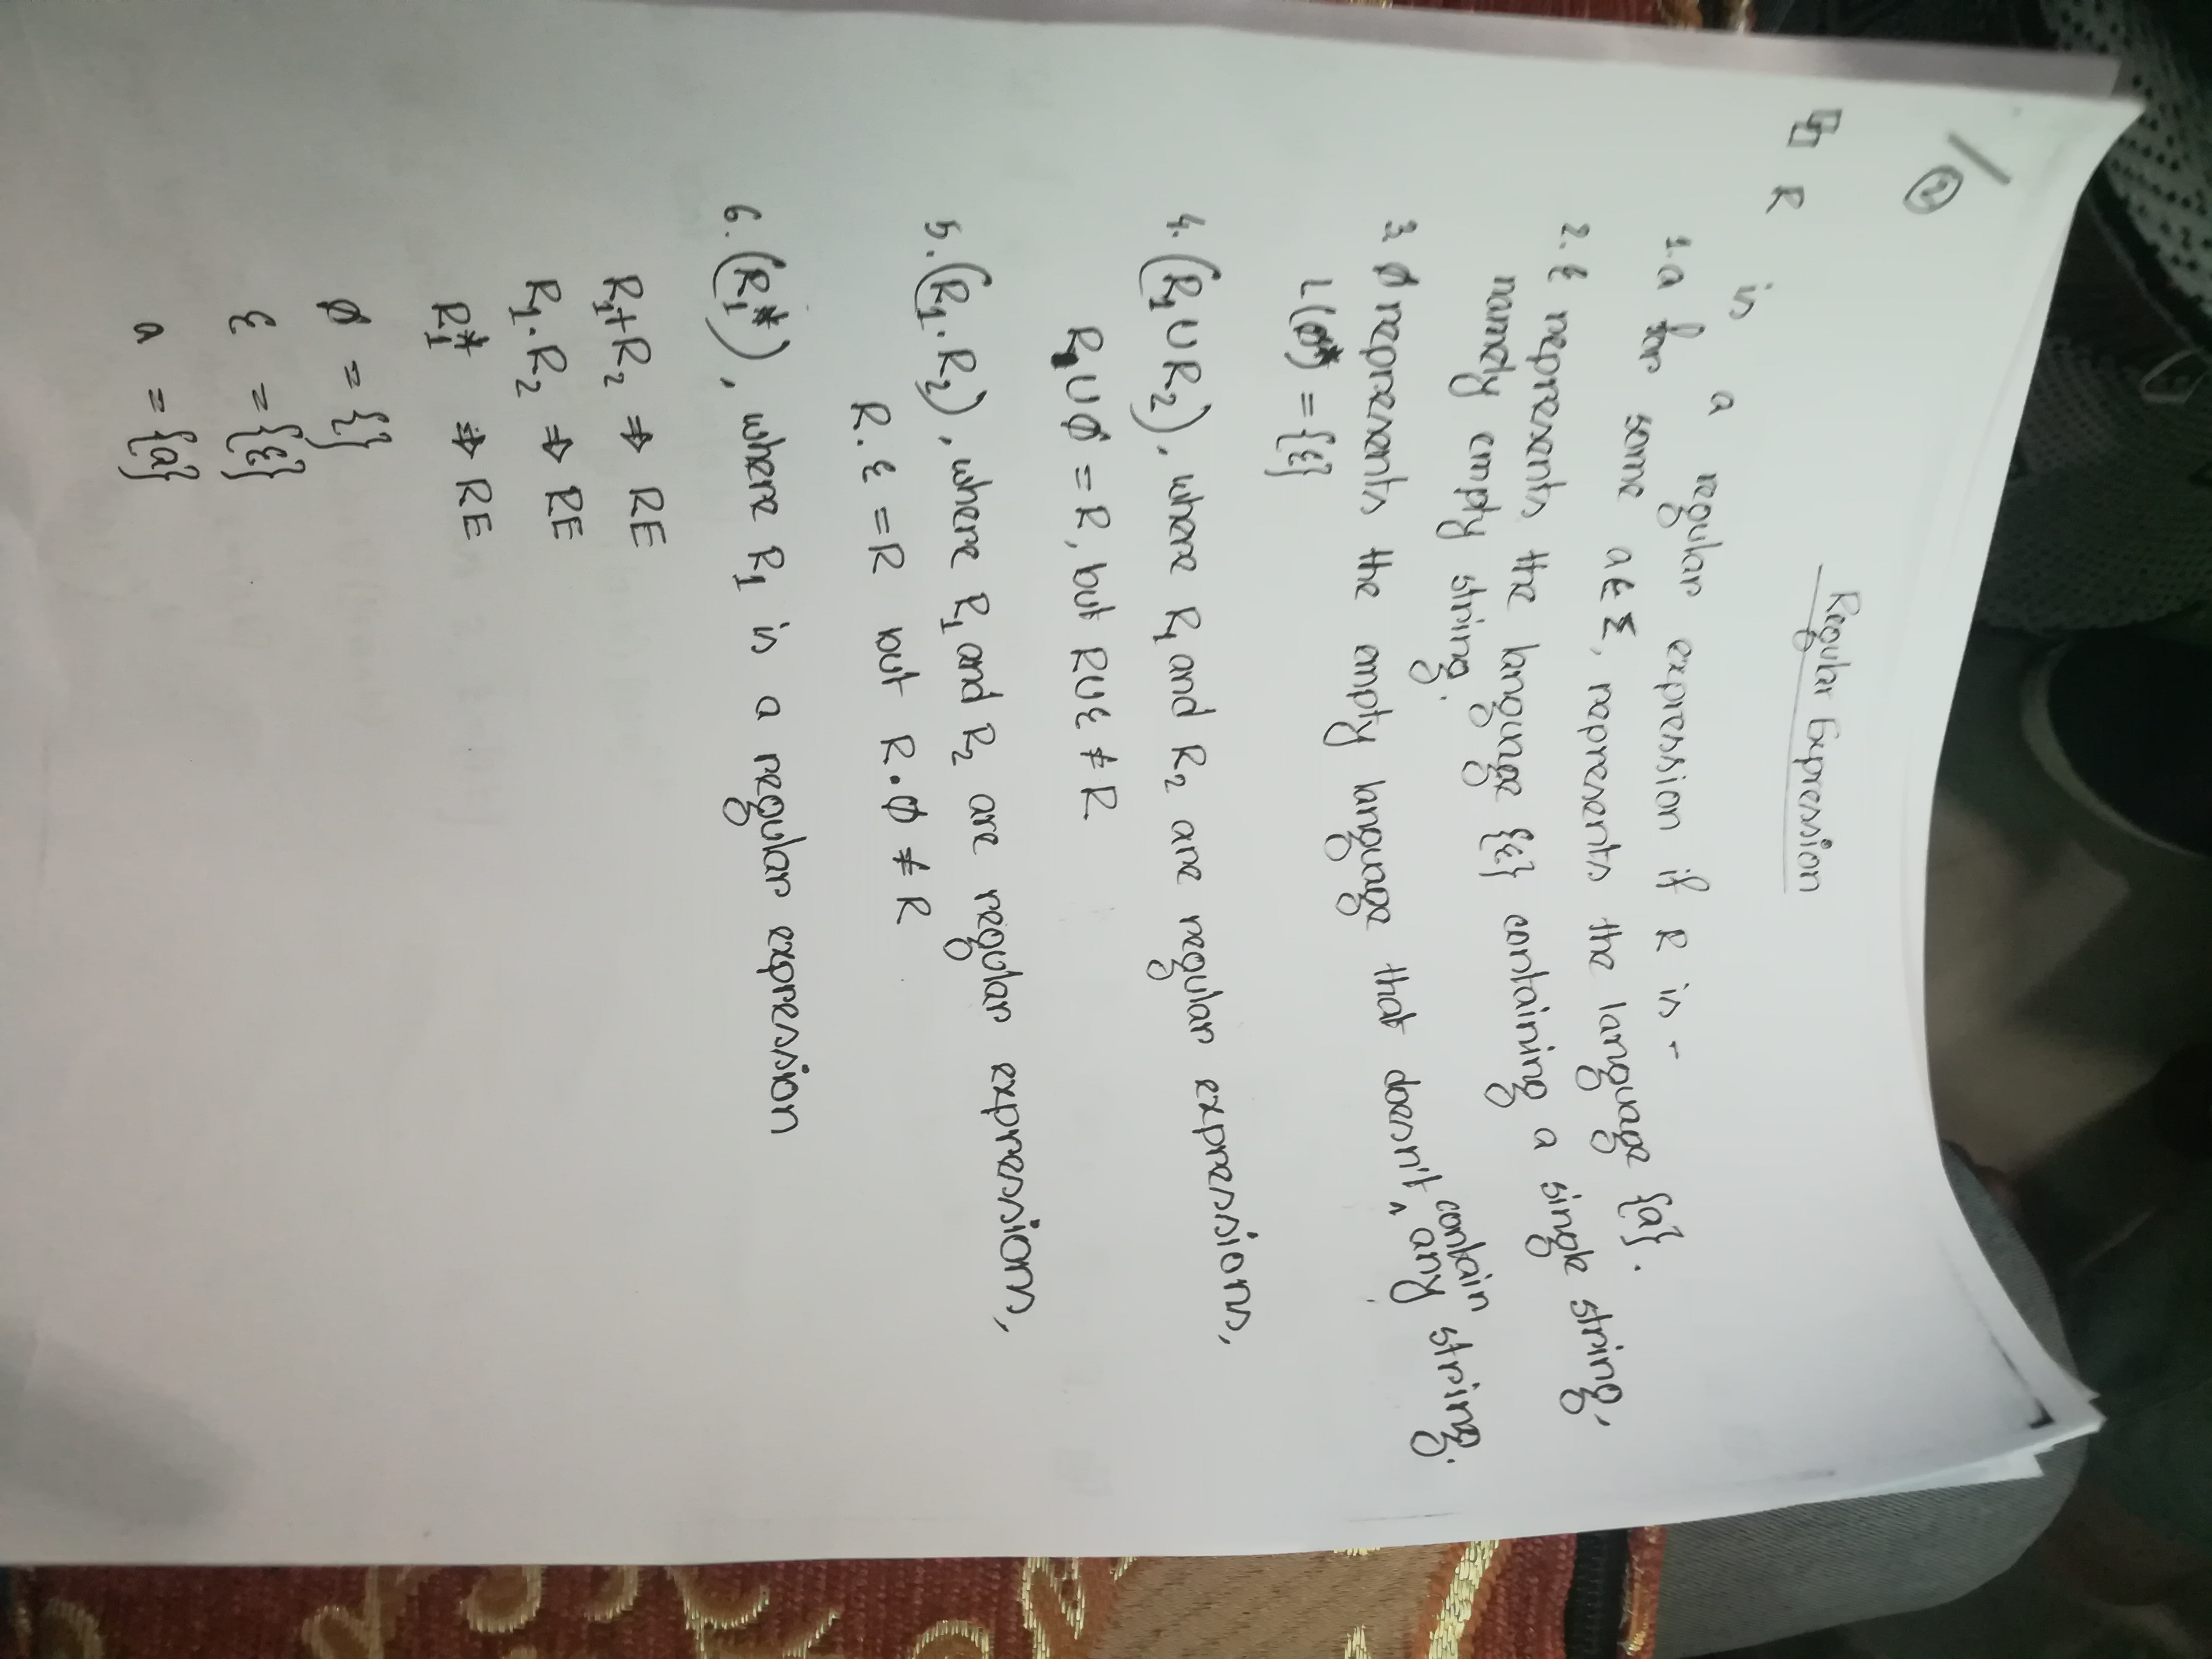 / ②
Regular Expression
R is a regular expression if R is -
1. a for some a ∈ Σ, represents the language {a}.
2. ε represents the language {ε} containing a single string,
namely empty string.
3. ∅ represents the empty language that doesn't ^ contain any string.
L(∅*) = {ε}
4. (R₁ ∪ R₂), where R₁ and R₂ are regular expressions,
R ∪ ∅ = R, but R ∪ ε ≠ R
5. (R₁ . R₂), where R₁ and R₂ are regular expressions,
R . ε = R but R . ∅ ≠ R
6. (R₁*), where R₁ is a regular expression
R₁ + R₂ ⇒ RE
R₁ . R₂ ⇒ RE
R₁* ⇒ RE
∅ = {}
ε = {ε}
a = {a}